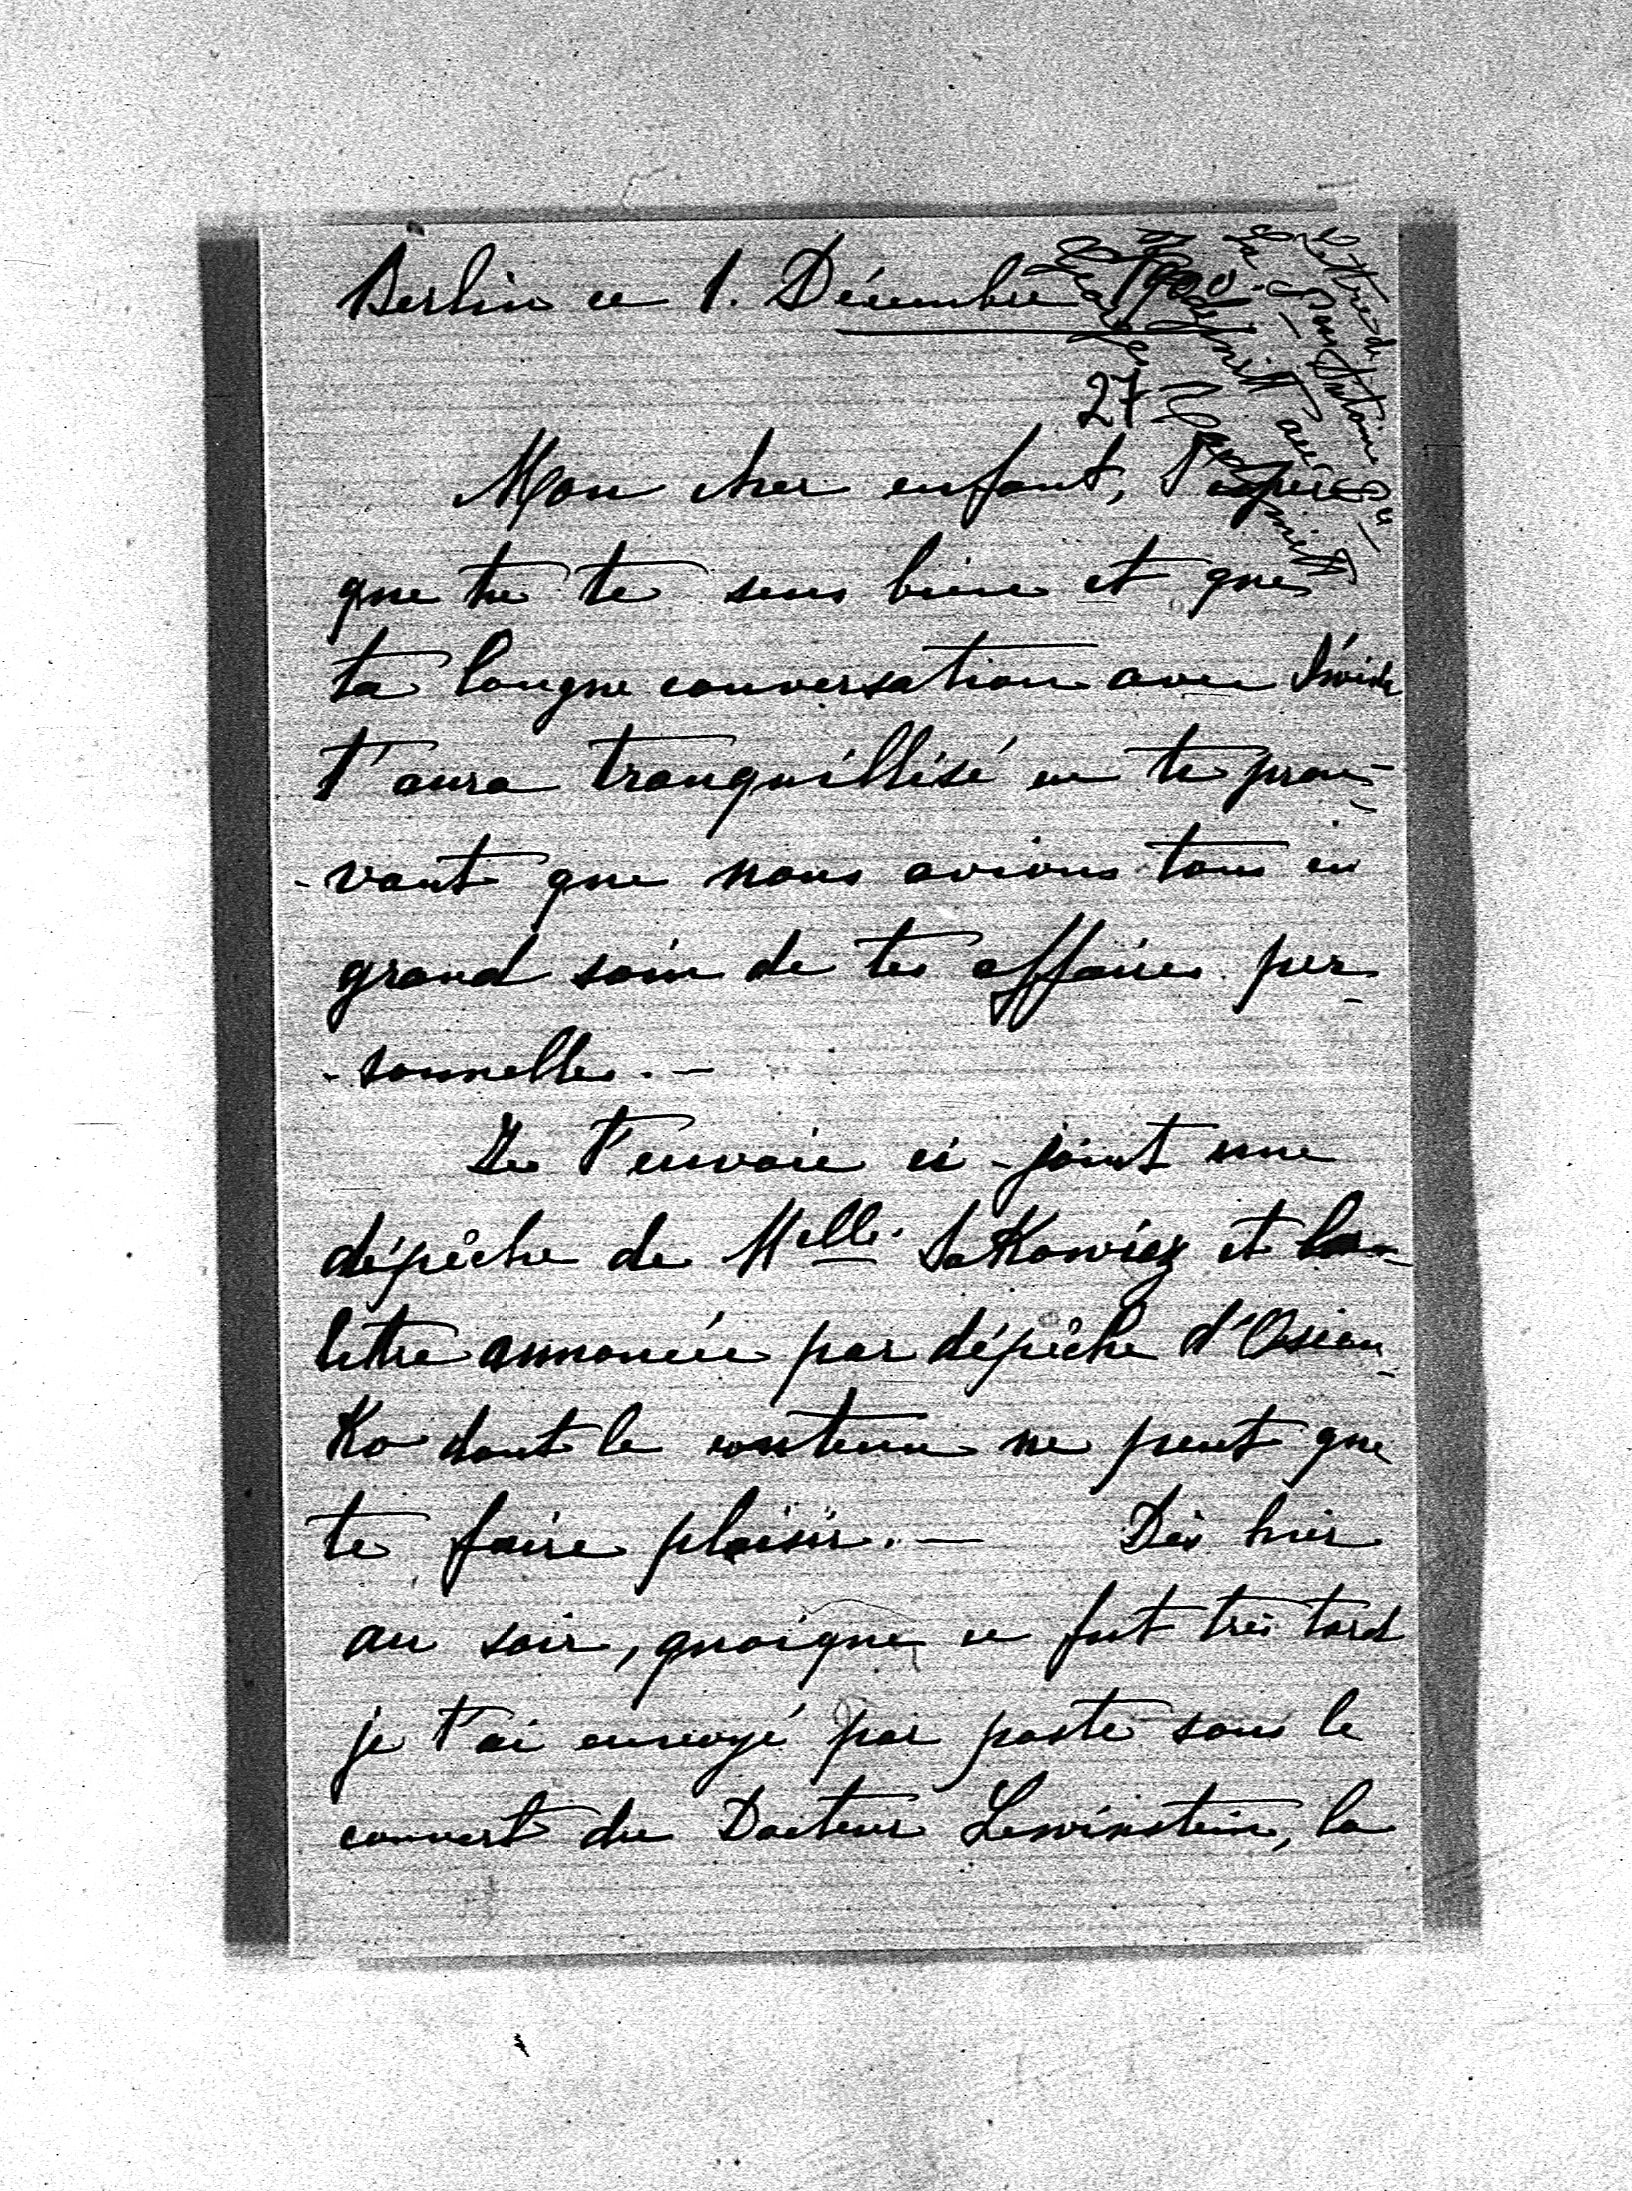 Berlin ce 1. Décembre 1900.
27
Mon cher enfant, J'espère
que tu te sens bien et que
ta longue conversation avec
t'aura tranquillisé en te prou-
-vant que nous avions tous eu
grand soin de tes affaires per-
-sonnelles. —
Je t'envoie ci-joint une
dépêche de Melle. Sakowicz et la
lettre annoncée par dépêche d'Osien-
ko dont le contenu ne peut que
te faire plaisir. — Dès hier
au soir, quoique ce fut très tard
je t'ai envoyé par poste sous le
couvert du Docteur Lewinstein, la
Lettre de